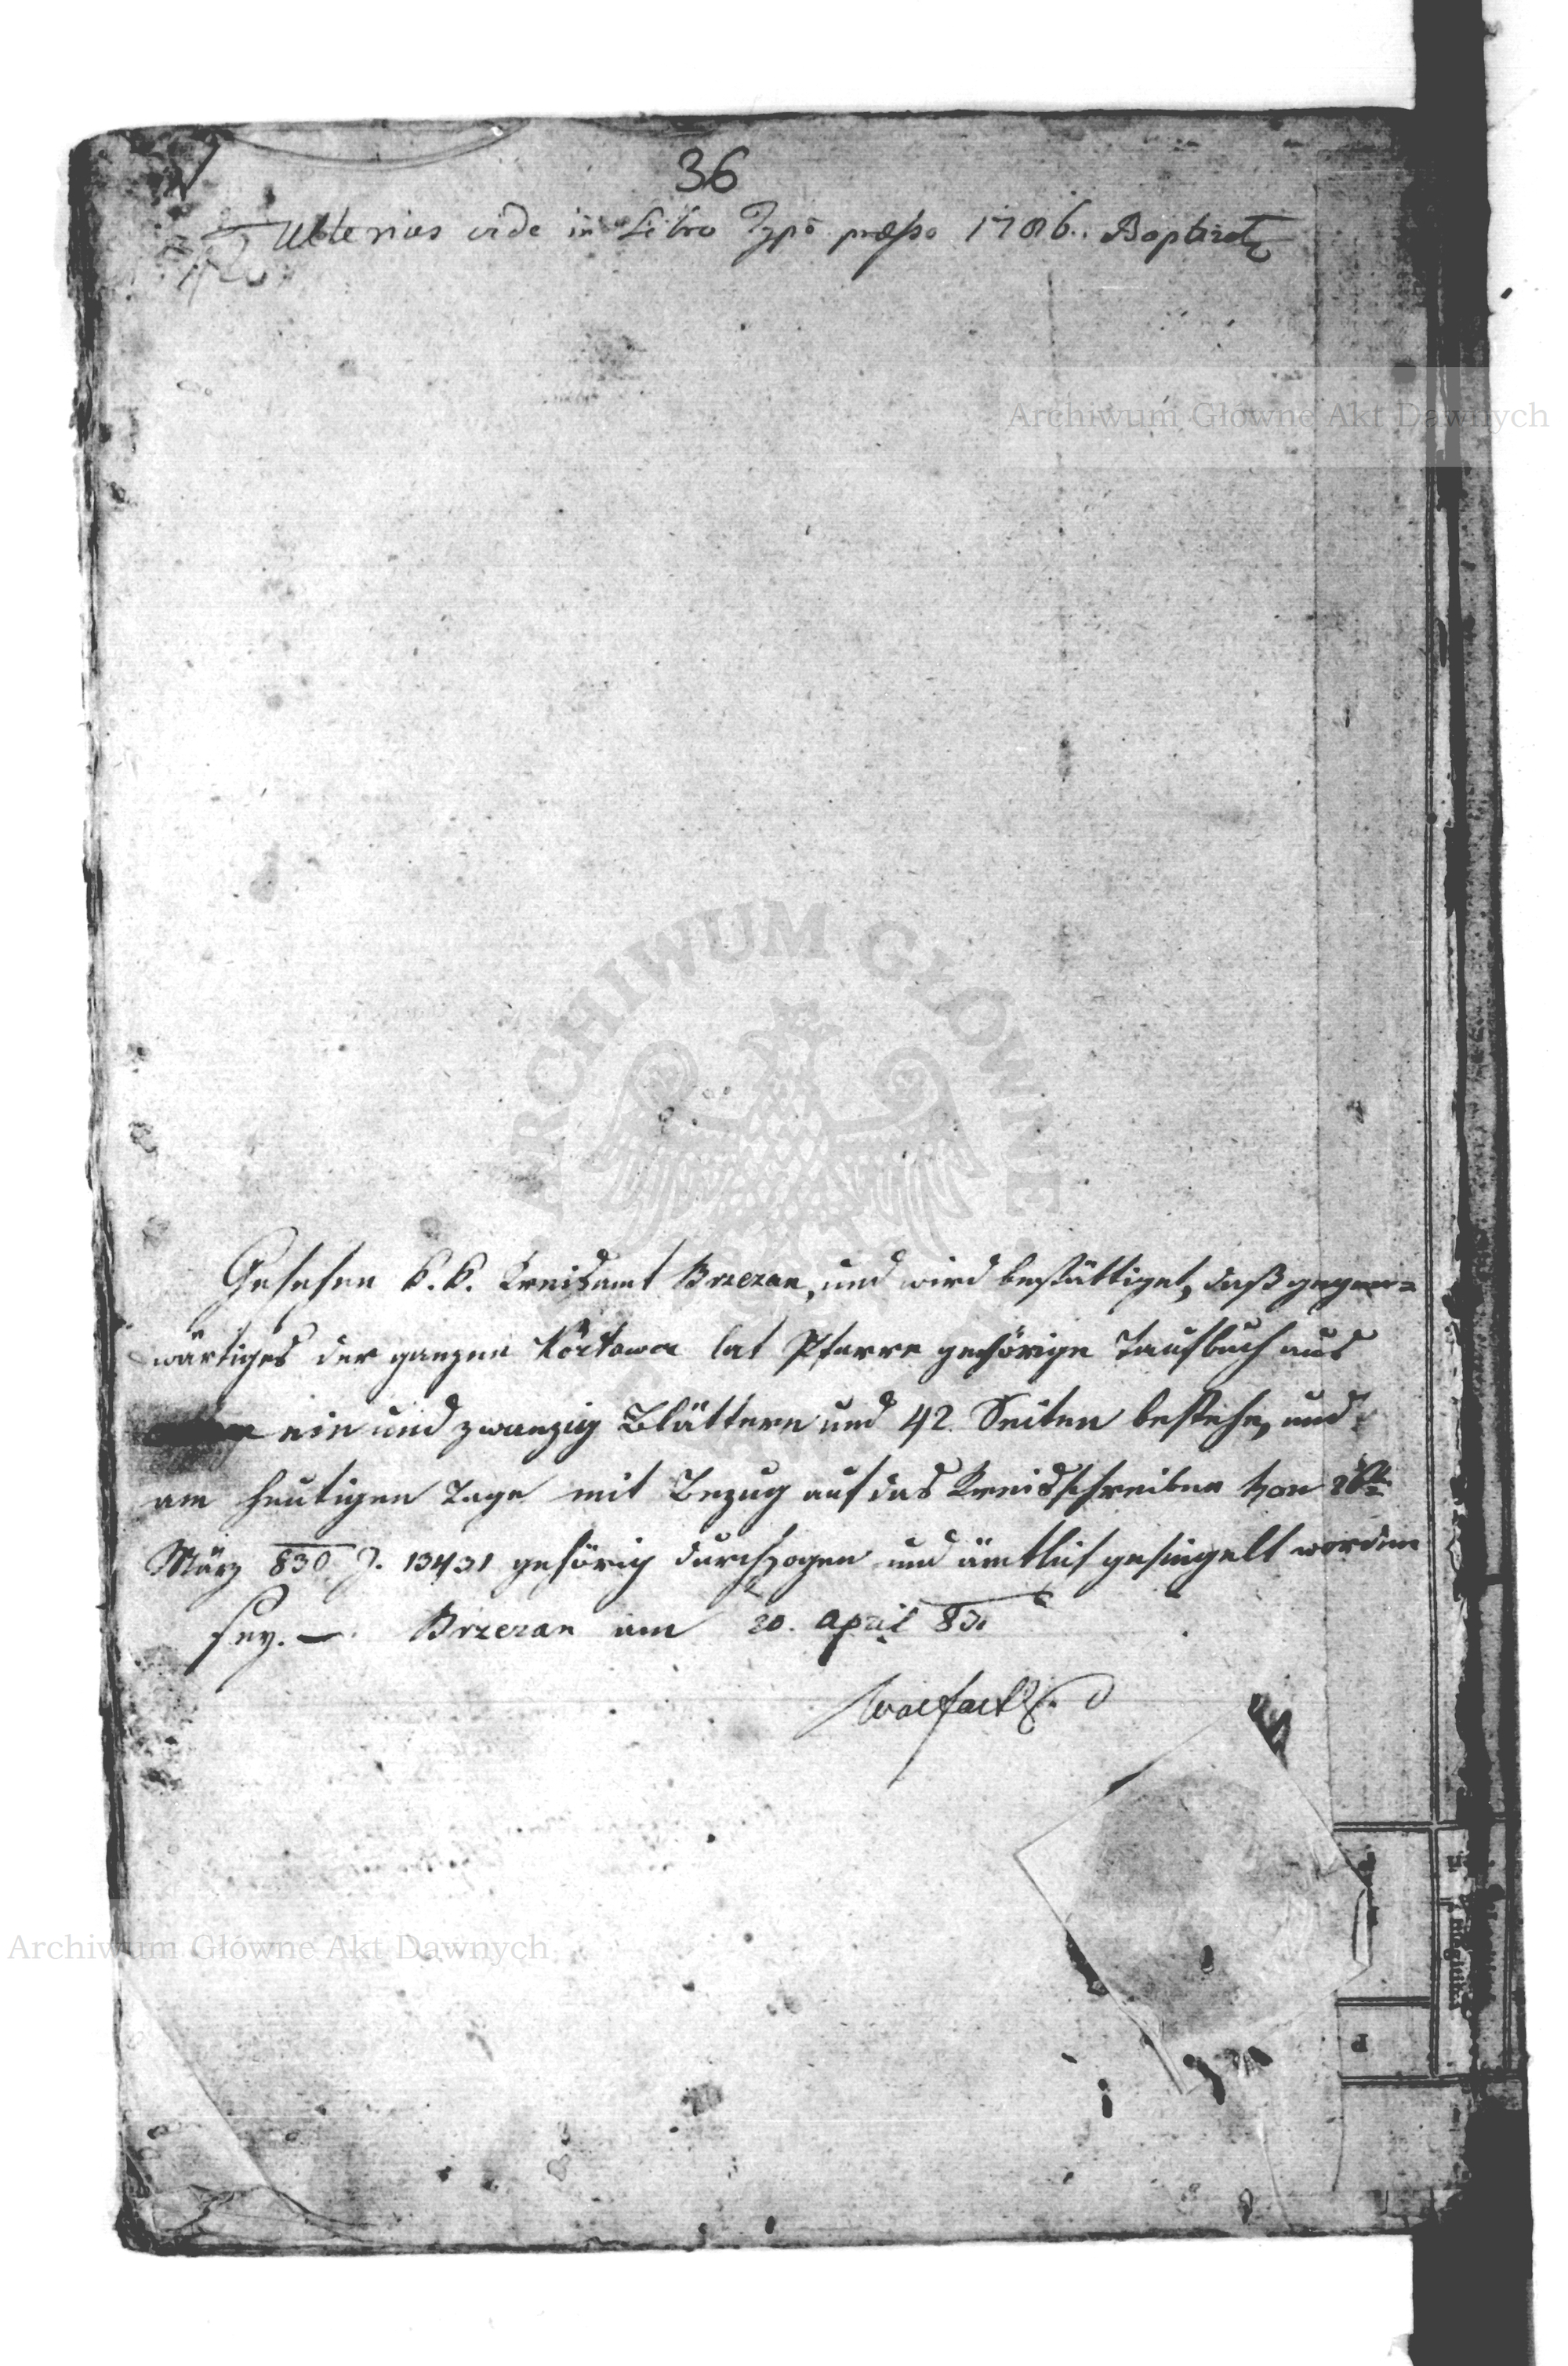 36
Ulterius vide in Libro Typō præsso 1786. Baptizat
Archiwum Główne Akt Dawnych
ARCHIWUM GŁÓWNE
Gesehen k. k. Kreisamt Brzezan, und wird bestättiget, daß gegen=
wärtiges der ganzen lat Pfarre gehörige Taufbuch aus
ein und zwanzig Blättern und 42 Seiten bestehe, und
am heutigen Tage mit Bezug auf das Kreisschreiben von
März 830 Z. 13431 gehörig durchzogen und ämtlich gesiegelt worden
sey. — Brzezan am 20. April 83
Archiwum Główne Akt Dawnych